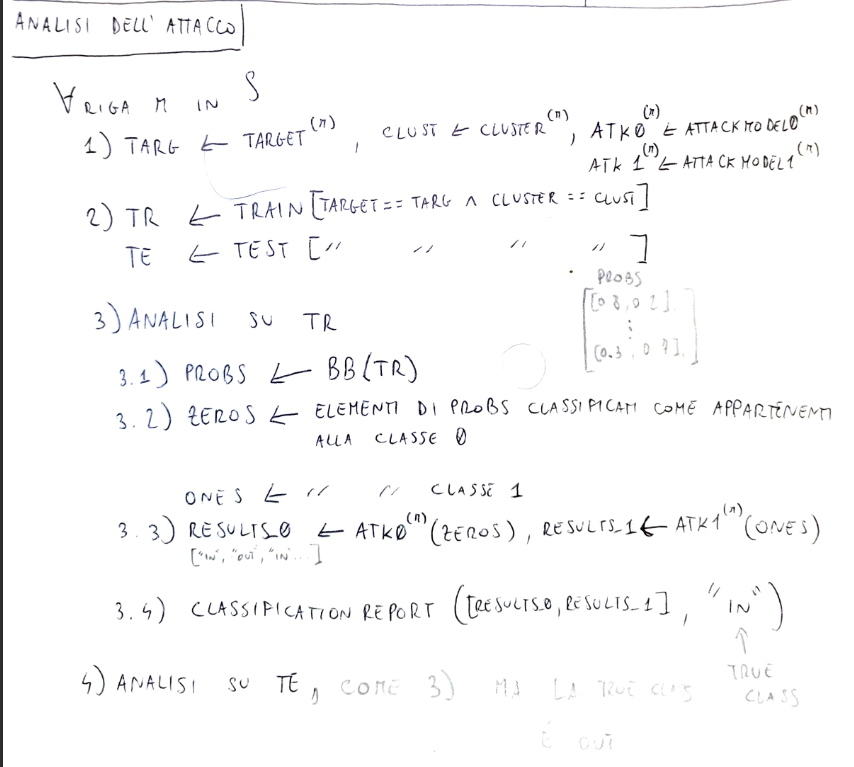 ANALISI DELL' ATTACCO
∀ RIGA M IN S
1) TARG ← TARGET^(n), CLUST ← CLUSTER^(n), ATK0^(n) ← ATTACKMODEL0^(n)
ATK1^(n) ← ATTACKMODEL1^(n)
2) TR ← TRAIN [TARGET == TARG ∧ CLUSTER == CLUST]
TE ← TEST [ " " " " ]
PROBS
3) ANALISI SU TR
[[0.8, 0.2],
⋮
[0.3, 0.7],]
3.1) PROBS ← BB(TR)
3.2) ZEROS ← ELEMENTI DI PROBS CLASSIFICATI COME APPARTENENTI
ALLA CLASSE 0
ONES ← " " CLASSE 1
3.3) RESULTS_0 ← ATK0^(n)(ZEROS), RESULTS_1 ← ATK1^(n)(ONES)
["IN", "OUT", "IN"...]
3.4) CLASSIFICATION REPORT ([RESULTS_0, RESULTS_1], "IN")
↑
TRUE
CLASS
4) ANALISI SU TE, COME 3) MA LA TRUE CLASS
È OUT